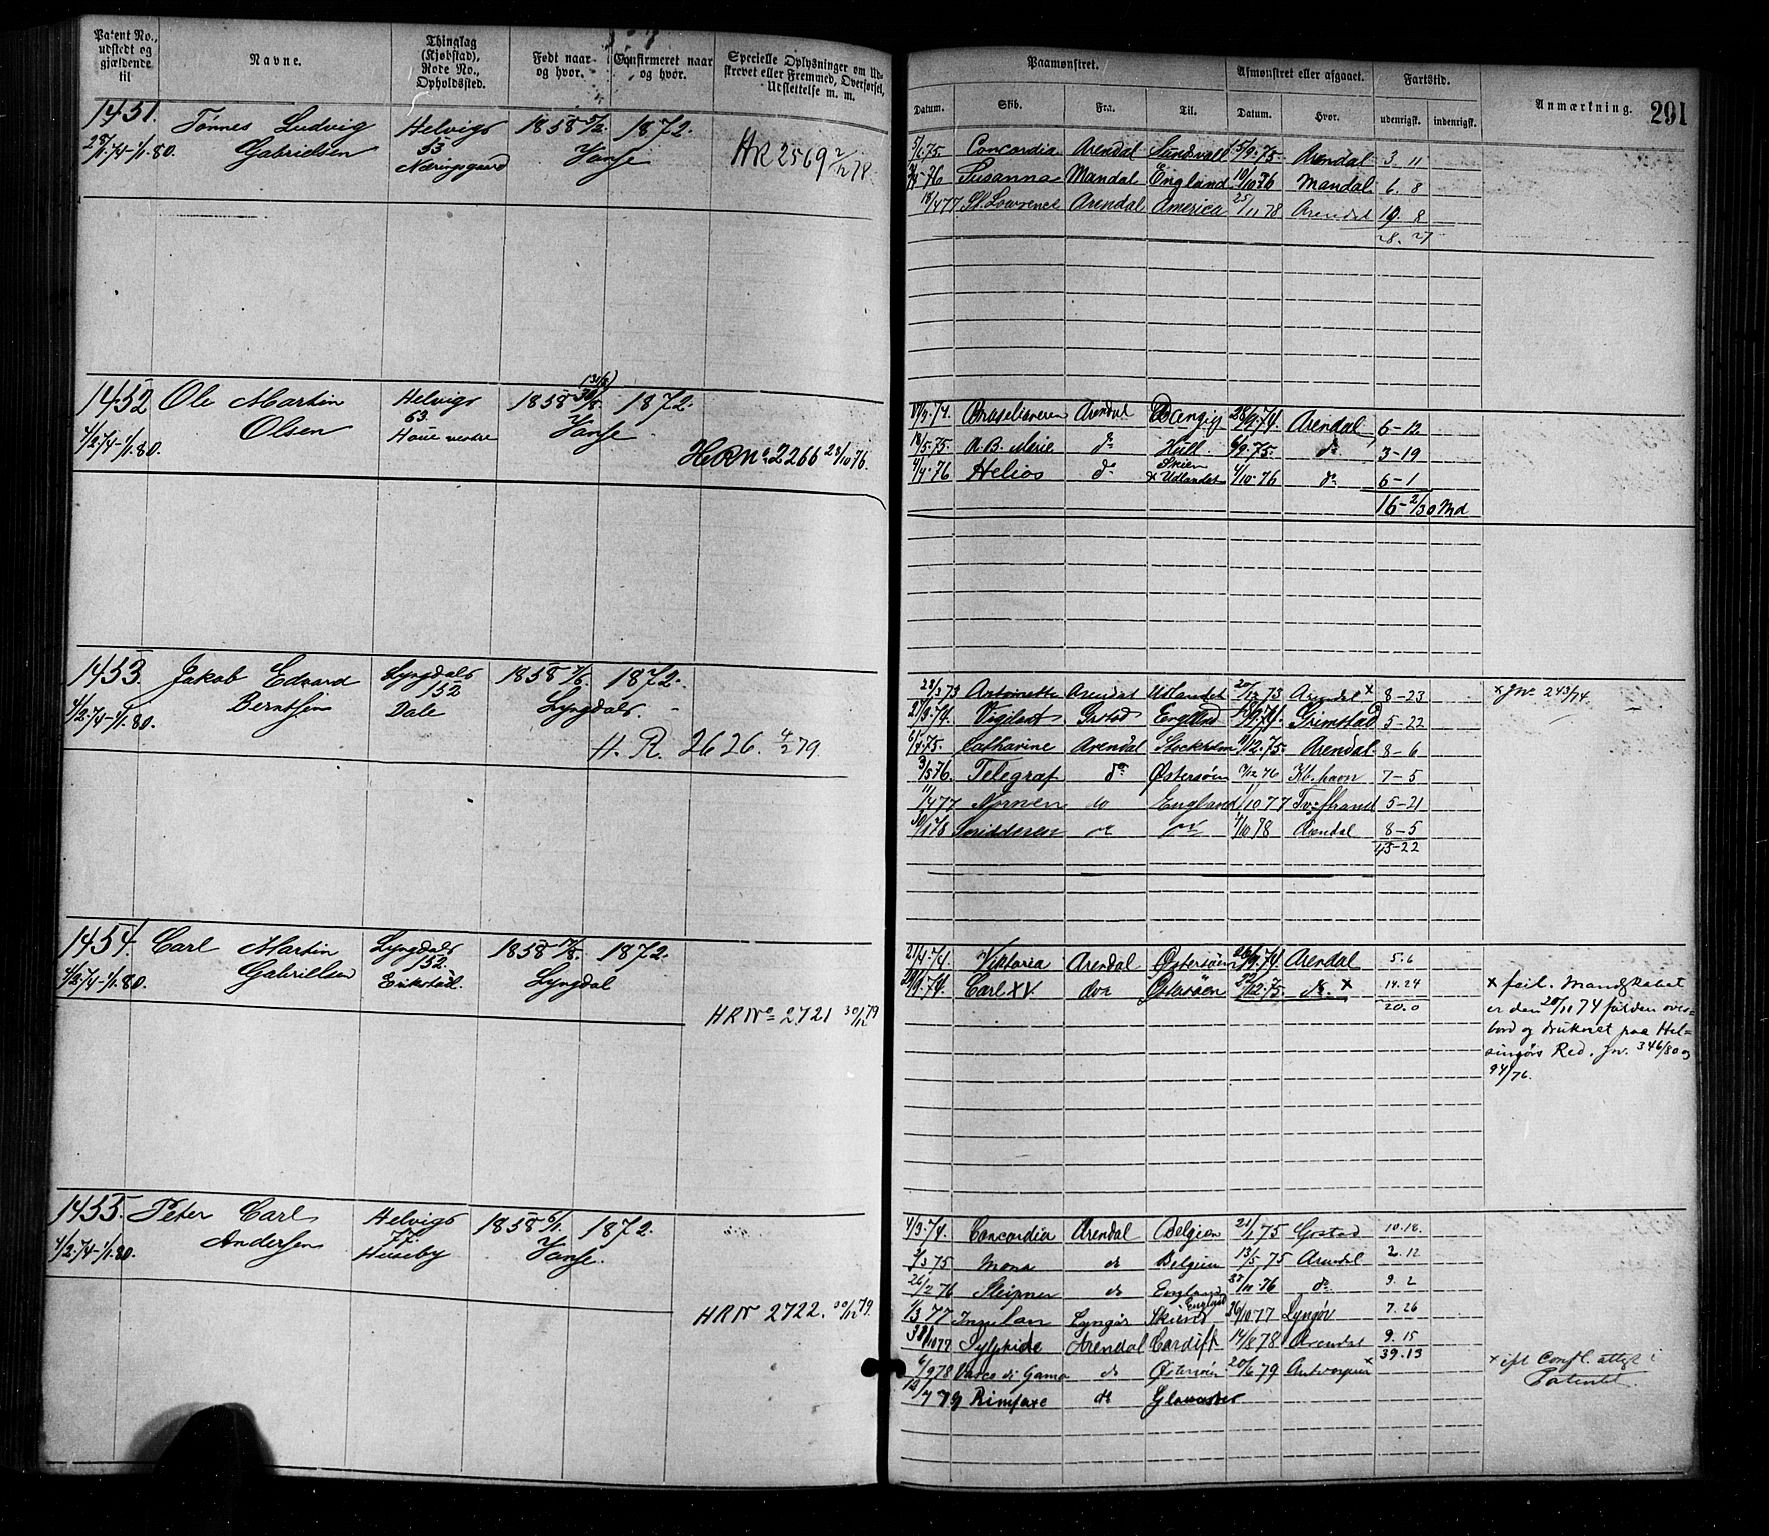 Patent No., udstedt og gjældende til
Navne.
Thinglag (Kjøbstad), Rode No., Opholdssted.
Født naar og hvor.
Confirmeret naar og hvor.
Specielle Oplysninger om Udskrevet eller Fremmed, Overførsel, Udslettelse m. m.
Paamønstret.
Afmønstret eller afgaaet.
Fartstid.
Anmærkning.
291
Datum. Skib. Fra. Til. Datum. Hvor. udenrigsk. indenrigsk.
1451. Tønnes Ludvig Helvigs 1858 1872.
Gabrielsen 53 Vanse
HR 2569 2/12 78.
5/6 75. Concordia Arendal Sundsvall 15/9 75. Arendal 3. 11
76 Susanna Mandal England 10/10 76 Mandal 6. 8
18/4 77 St. Lawrence Arendal America 25/11 78 Arendal 19. 8
28. 27
1452 Ole Martin Helvigs 1858 30/8 1872.
Olsen 63 Vanse
4/2 74-1/1 80.
HRNo 2266 28/10 76.
Arendal 28/9 74. Arendal 6-12
18/5 75. A. B. Marie do Hull 6/9 75. do 3-19
4/4 76 Helios do Skien x Udlandet 4/10 76 do 6-1
16-2/30 Md
1453. Jakob Edvard Lyngdals 1858 1872.
Berntsen 152
4/2 74-1/1 80. Dale Lyngdals.
H. R. 2626. 4/2 79.
28/3 73 Antoinette Arendal Udlandet 20/12 73 Arendal x 8-23 x Jno 243/74.
Vigilant Grstad England Grimstad 5-22
6/4 75. Catharine Arendal Stockholm 11/12 75. Arendal 8-6
3/5 76. Telegraf do Østersøen 9/12 76 Kb.havn 7-5
11/4 77 Nornen do England 1/10 77 Tv:strand 5-21
4/10 78 Arendal 8-5
45-22
1454. Carl Martin Lyngdals 1858 17/8. 1872.
Gabrielsen 152.
4/2 74-1/1 80. Erikstad. Lyngdal
HRNo 2721 30/12 79
21/4 74. Viktoria Arendal Østersøen 26/9 74 Arendal 5.6
Carl XV. do Østersøen do x 14.24
20.0
x feil. Mandskabet
er den 20/11 74 falden over-
bord og druknet paa Hel-
singørs Red. Jn. 346/80 og
94/76.
1455. Peter Carl Helvigs 1858 6/1. 1872.
Andersen 77.
4/2 74-1/1 80. Huseby Vanse.
HRNo 2722. 30/12 79.
4/3 74. Concordia Arendal Belgien 21/1 75 Grstad 10.18
3 75 Mona do Belgien 13/5 75 Arendal 2.12
26/2 76 Sleipner do England 76 do 9.2
1/3 77 Lyngør England 26/10 77 Lyngør 7.26
Sylphide Arendal Cardiff 14/8 78 Arendal 9.15
39.13
6/9 78 Vasco di Gama do Østersøn 20/6 79 Antwerpen x
x ift Confl. attest i
Patentet
12/7 79 Rimfaxe do Glouester